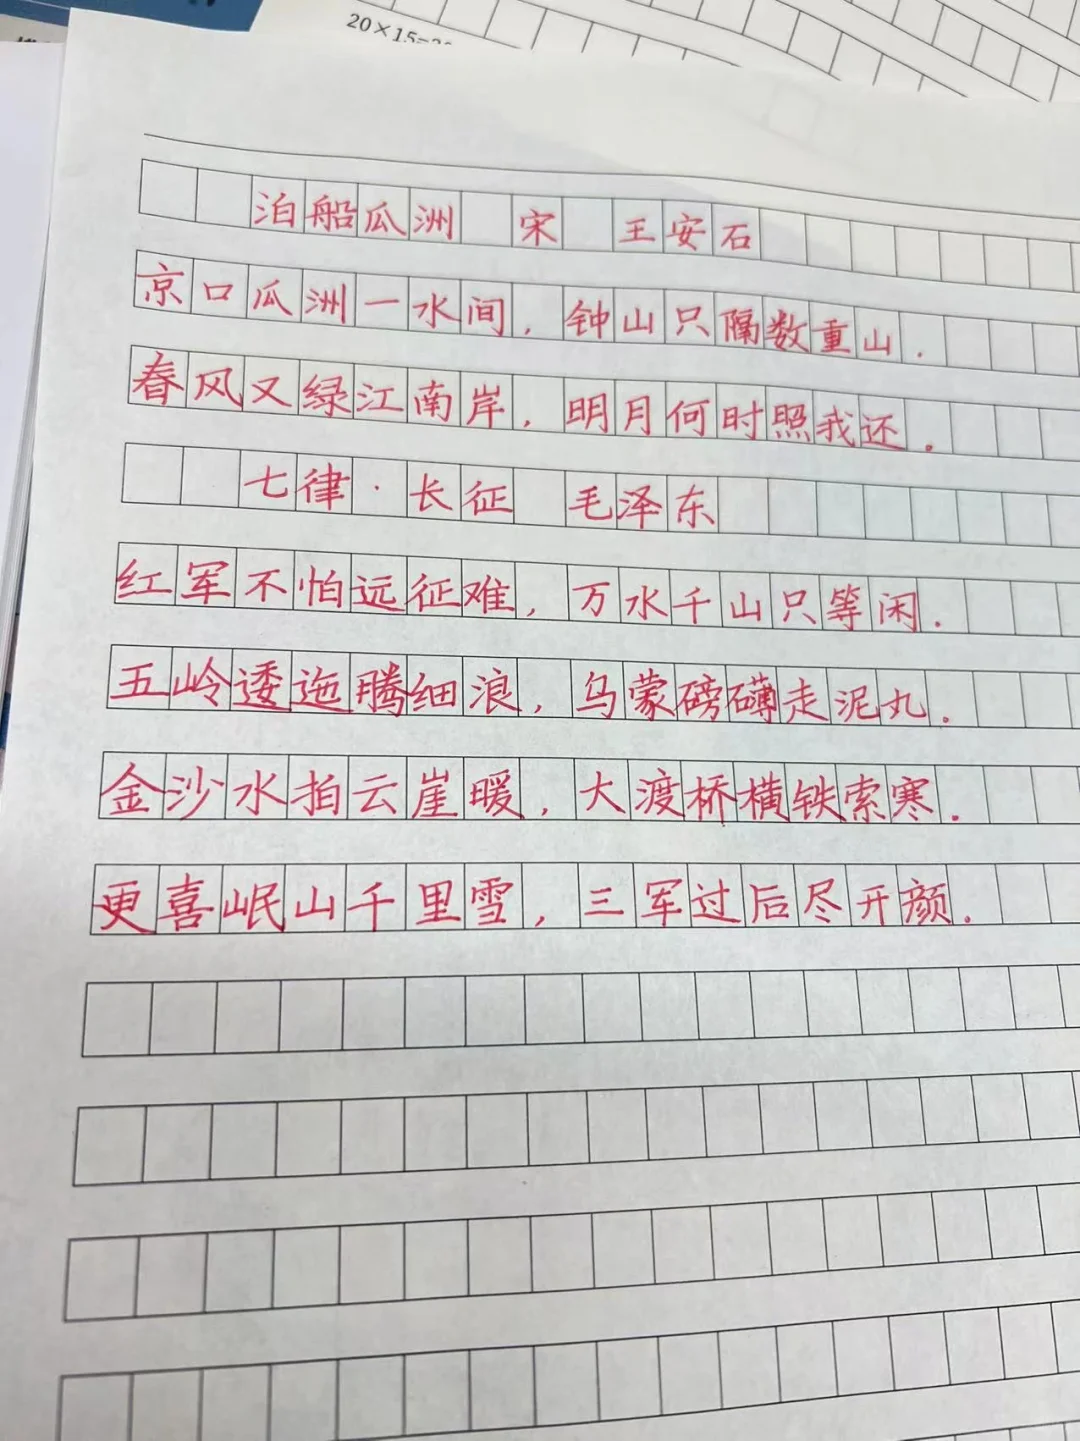 20×15=30
泊船瓜洲 宋 王安石
京口瓜洲一水间，钟山只隔数重山.
春风又绿江南岸，明月何时照我还.
七律·长征 毛泽东
红军不怕远征难，万水千山只等闲.
五岭逶迤腾细浪，乌蒙磅礴走泥丸.
金沙水拍云崖暖，大渡桥横铁索寒.
更喜岷山千里雪，三军过后尽开颜.